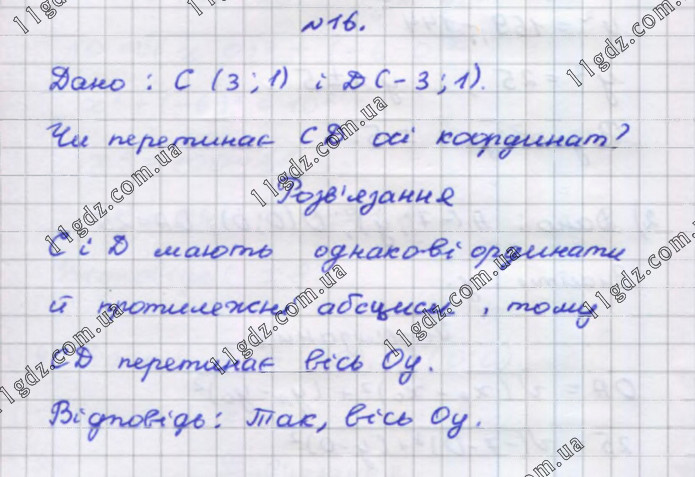 №16.
Дано : C (3 ; 1) і D (-3 ; 1).
Чи перетинає CD осі координат?
Розв'язання
C і D мають однакові ординати
й протилежні абсциси, тому
CD перетинає вісь Oy.
Відповідь: Так, вісь Oy.
11gdz.com.ua
11gdz.com.ua
11gdz.com.ua
11gdz.com.ua
11gdz.com.ua
11gdz.com.ua
11gdz.com.ua
11gdz.com.ua
11gdz.com.ua